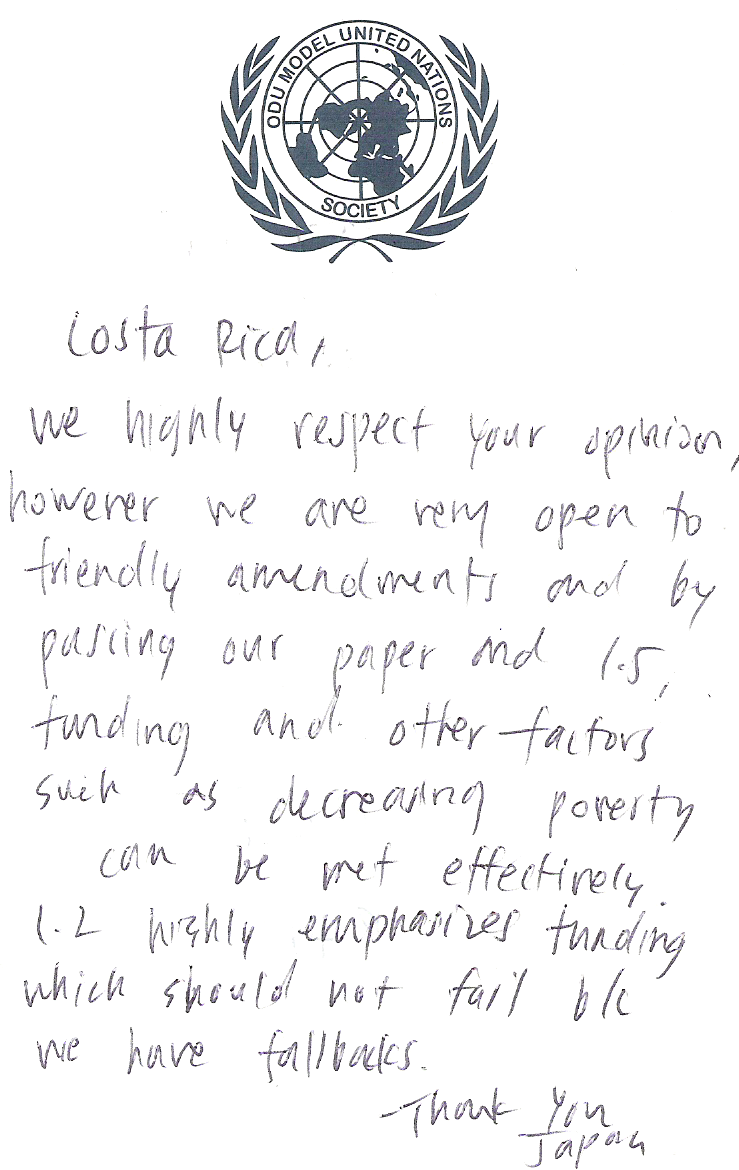 ODU MODEL UNITED NATIONS
SOCIETY
Costa Rica,
we highly respect your opinion,
however we are very open to
friendly amendments and by
passing our paper and 1.5,
funding and other factors
such as decreasing poverty
can be met effectively.
1.2 highly emphasizes funding
which should not fail b/c
we have fallbacks.
-Thank You
Japan